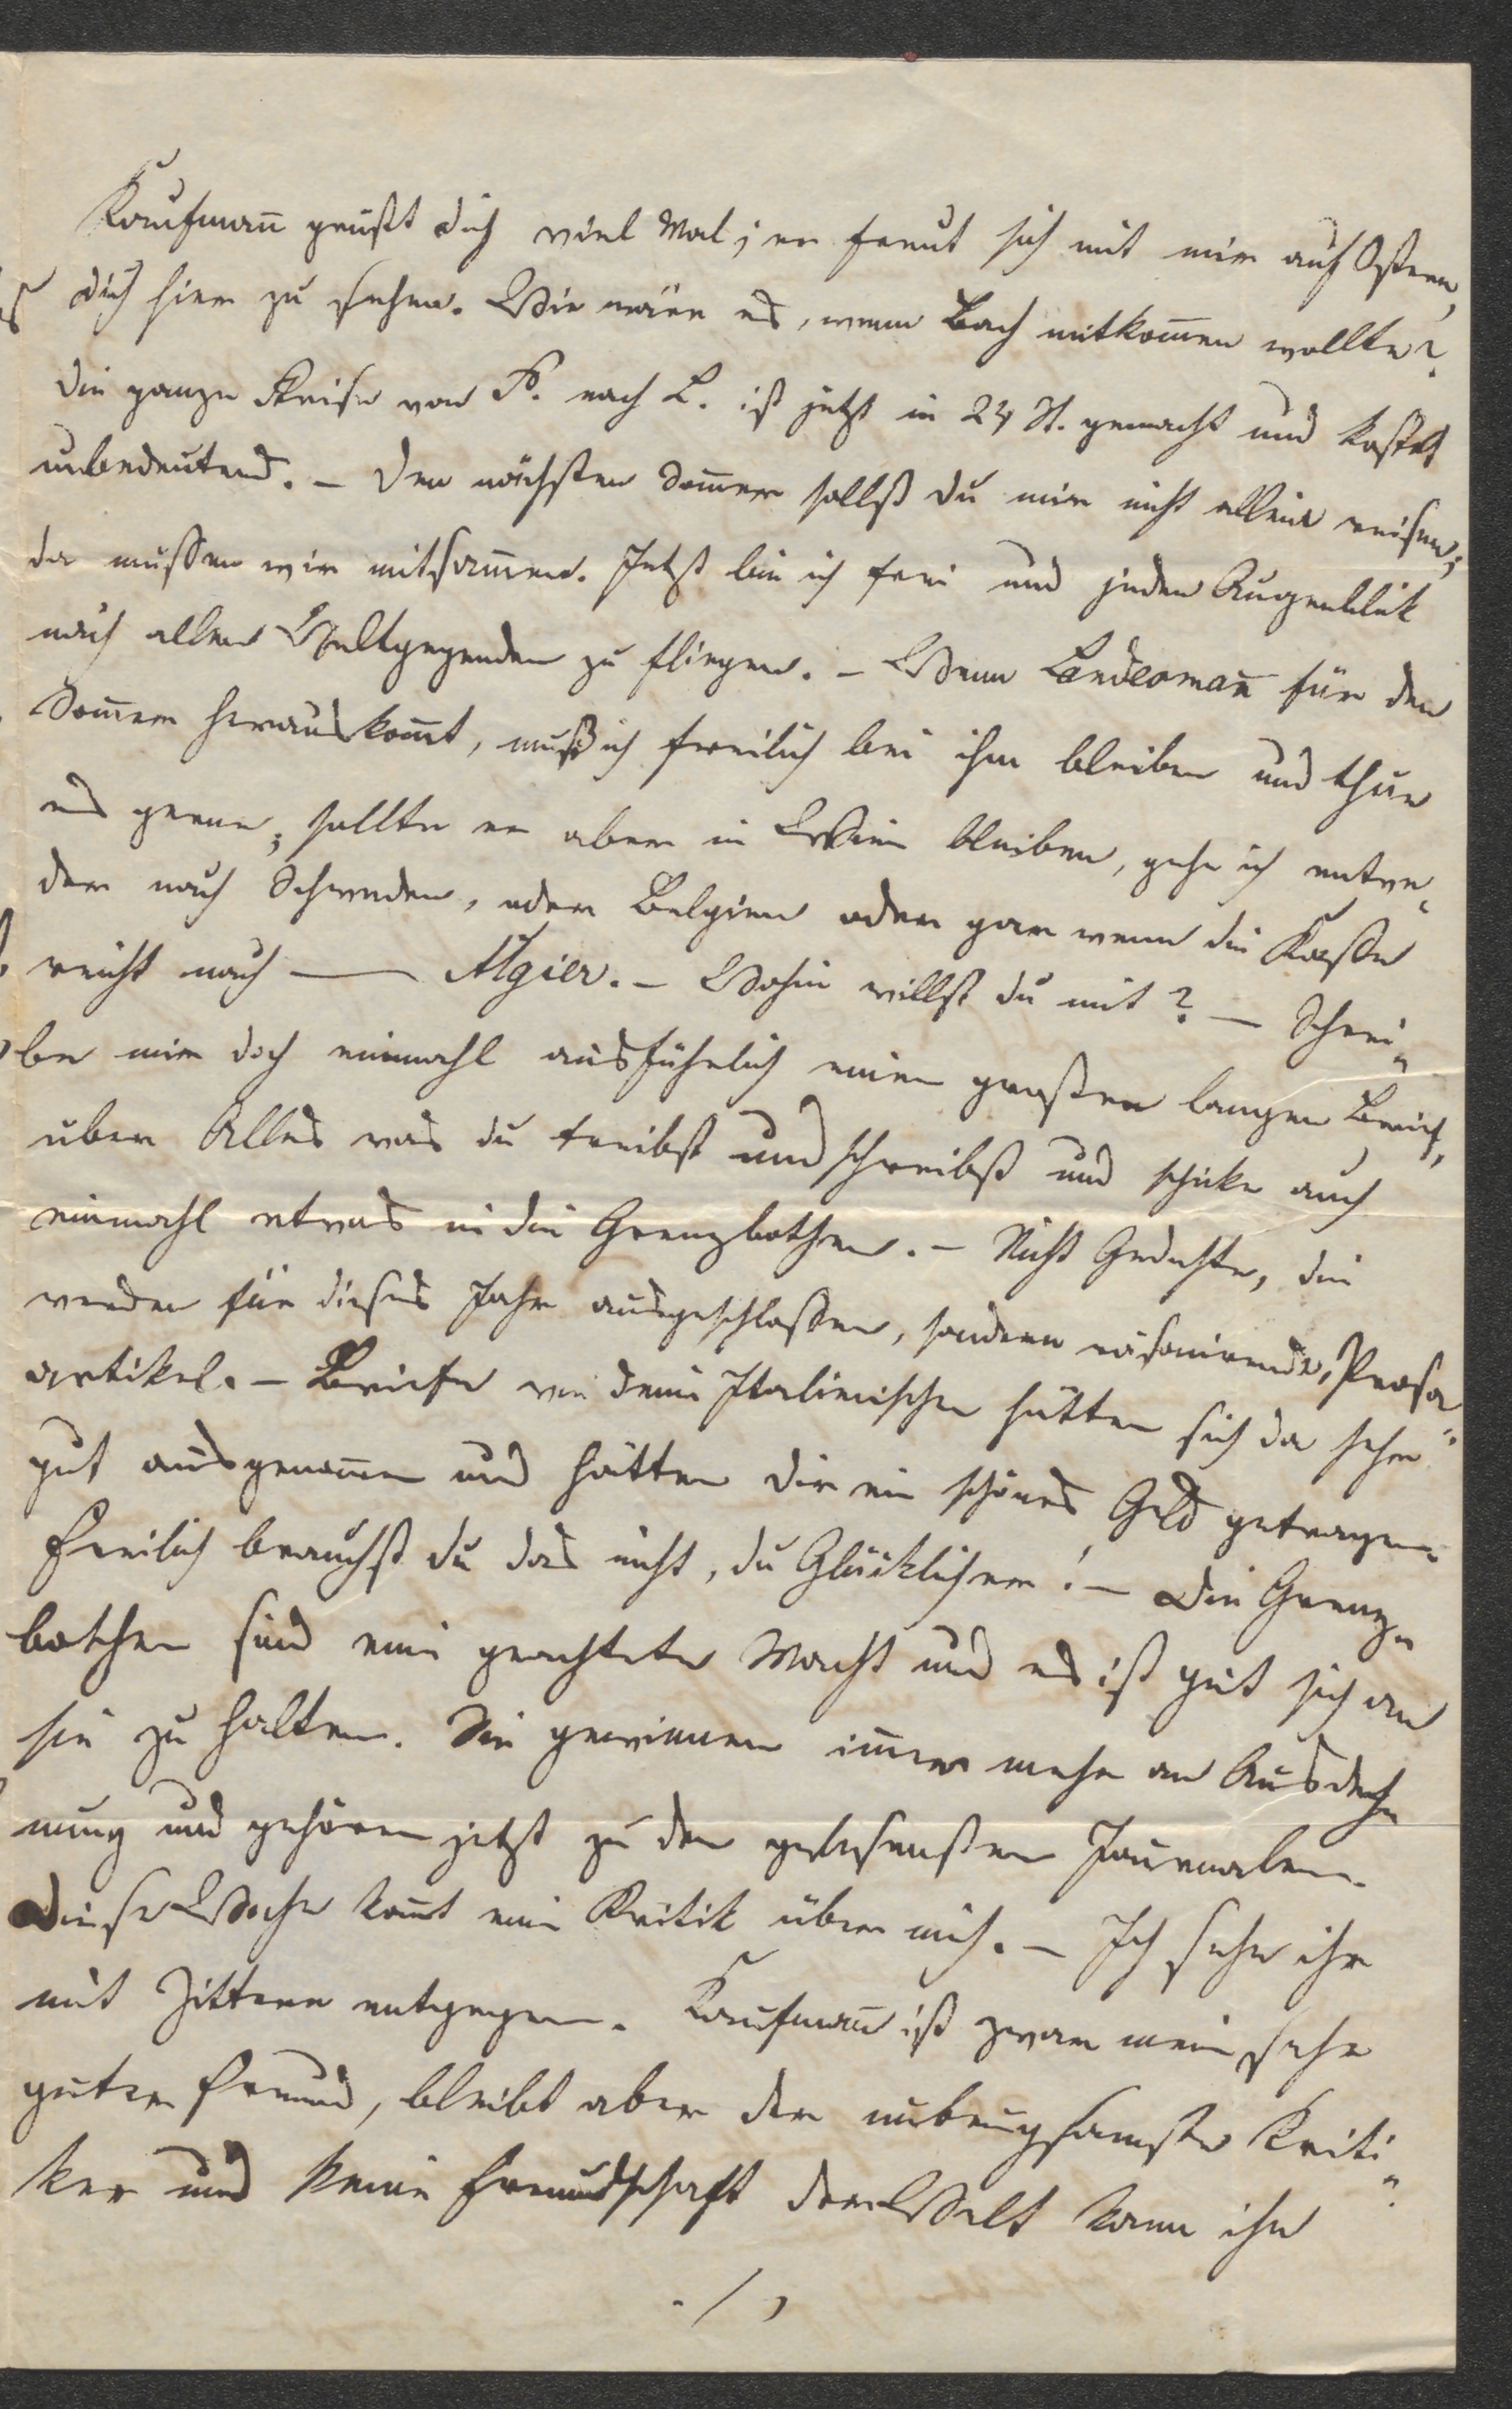 Kaufmañ grüßt dich viel Mal; er freut sich mit mir auf Ostern,
dich hier zu sehen. Wie wäre es, wenn Bach mitkom̃en wollte?
Die ganze Reise von P. nach L. ist jetzt in 24 St. gemacht und kostet
unbedeutend. – Den nächsten Som̃er sollst du mir nicht allein reisen;
da müssen wir mitsam̃en. Jetzt bin ich frei und jeden Augenblick
nach allen Weltgegenden zu fliegen. – Wenn Landesmañ für den
Som̃er herauskom̃t, muß ich freilich bei ihm bleiben und thue
es gerne; sollte er aber in Wien bleiben, gehe ich entwe-
der nach Schweden, oder Belgien oder gar wenn die Kasse
reicht nach — Algier. – Wohin willst du mit? – Schrei-
be mir doch einmahl ausführlich einen großen langen Brief,
über Alles was du treibst und schreibst und schicke auch
einmahl etwas in die Grenzbothen. – Nicht Gedichte, die
werden für dieses Jahr ausgeschlossen, sondern räsonirende, Prosa-
artikel. – Briefe von dem Italienischen hätten sich da sehr
gut ausgenom̃en und hätten dir ein schönes Geld getragen.
Freilich brauchst du das nicht, du Glücklicher! – Die Grenz-
bothen sind eine geachtete Macht und es ist gut sich an
sie zu halten. Sie gewinnen im̃er mehr an Ausdeh
nung und gehören jetzt zu den gelesensten Journalen.
Diese Woche kom̃t eine Kritik über mich. – Ich sehe ihr
mit Zittern entgegen. Kaufmañ ist zwar mein sehr
guter Freund, bleibt aber der unbeugsamste Kriti-
ker und keine Freundschaft der Welt kann ihn
./,